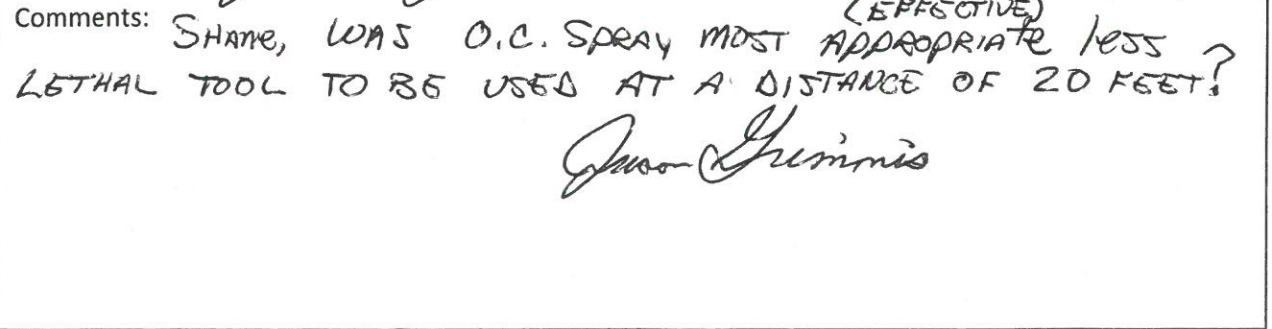 (EFFECTIVE)
Comments: SHANE, WAS O.C. SPRAY MOST APPROPRIATE less
LETHAL TOOL TO BE USED AT A DISTANCE OF 20 FEET?
Jason Grimmis